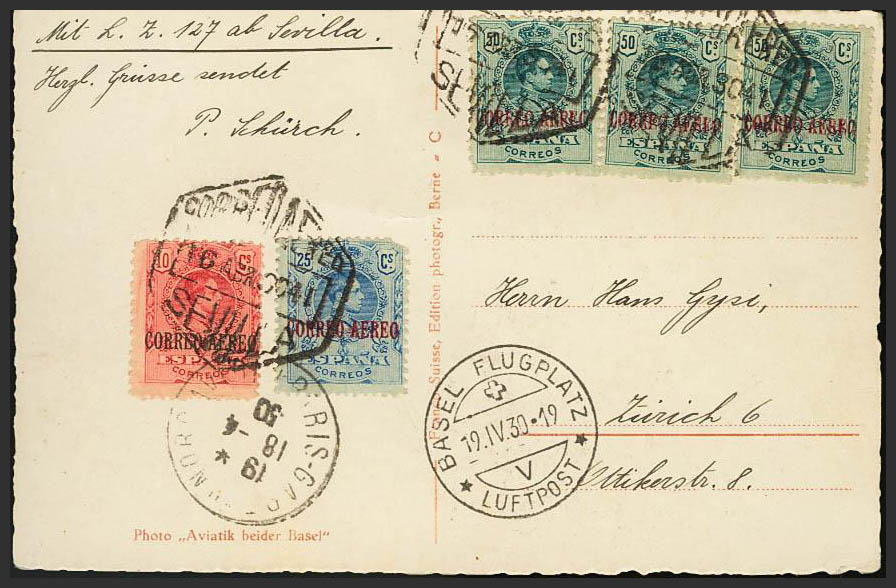 Mit L. Z. 127 ab Sevilla.
Herzl. Grüsse sendet
P. Schürch.
50 Cs
CORREO AEREO
ESPAÑA
CORREOS
50 Cs
CORREO AEREO
ESPAÑA
CORREOS
50 Cs
CORREO AEREO
ESPAÑA
CORREOS
10 Cs
CORREO AEREO
ESPAÑA
CORREOS
25 Cs
CORREO AEREO
ESPAÑA
CORREOS
16 ABR.30
SEVILLA
PARIS-GARE
19
18 -4
30
Suisse, Edition photogr., Berne - C
Herrn Hans Gysi,
Zürich 6
Ottikerstr. 8.
BASEL FLUGPLATZ
19.IV.30•19
V
LUFTPOST
Photo „Aviatik beider Basel"